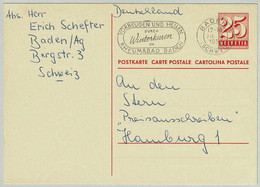 Deutschland
Abs. Herr
Erich Schefter
Baden/Ag
Bergstr. 3
Schweiz
VORBEUGEN UND HEILEN
DURCH
Winterkuren
IM
RHEUMABAD BADEN
BADEN
25
HELVETIA
POSTKARTE CARTE POSTALE CARTOLINA POSTALE
An den
Stern
"Preisausschreiben"
Hamburg 1